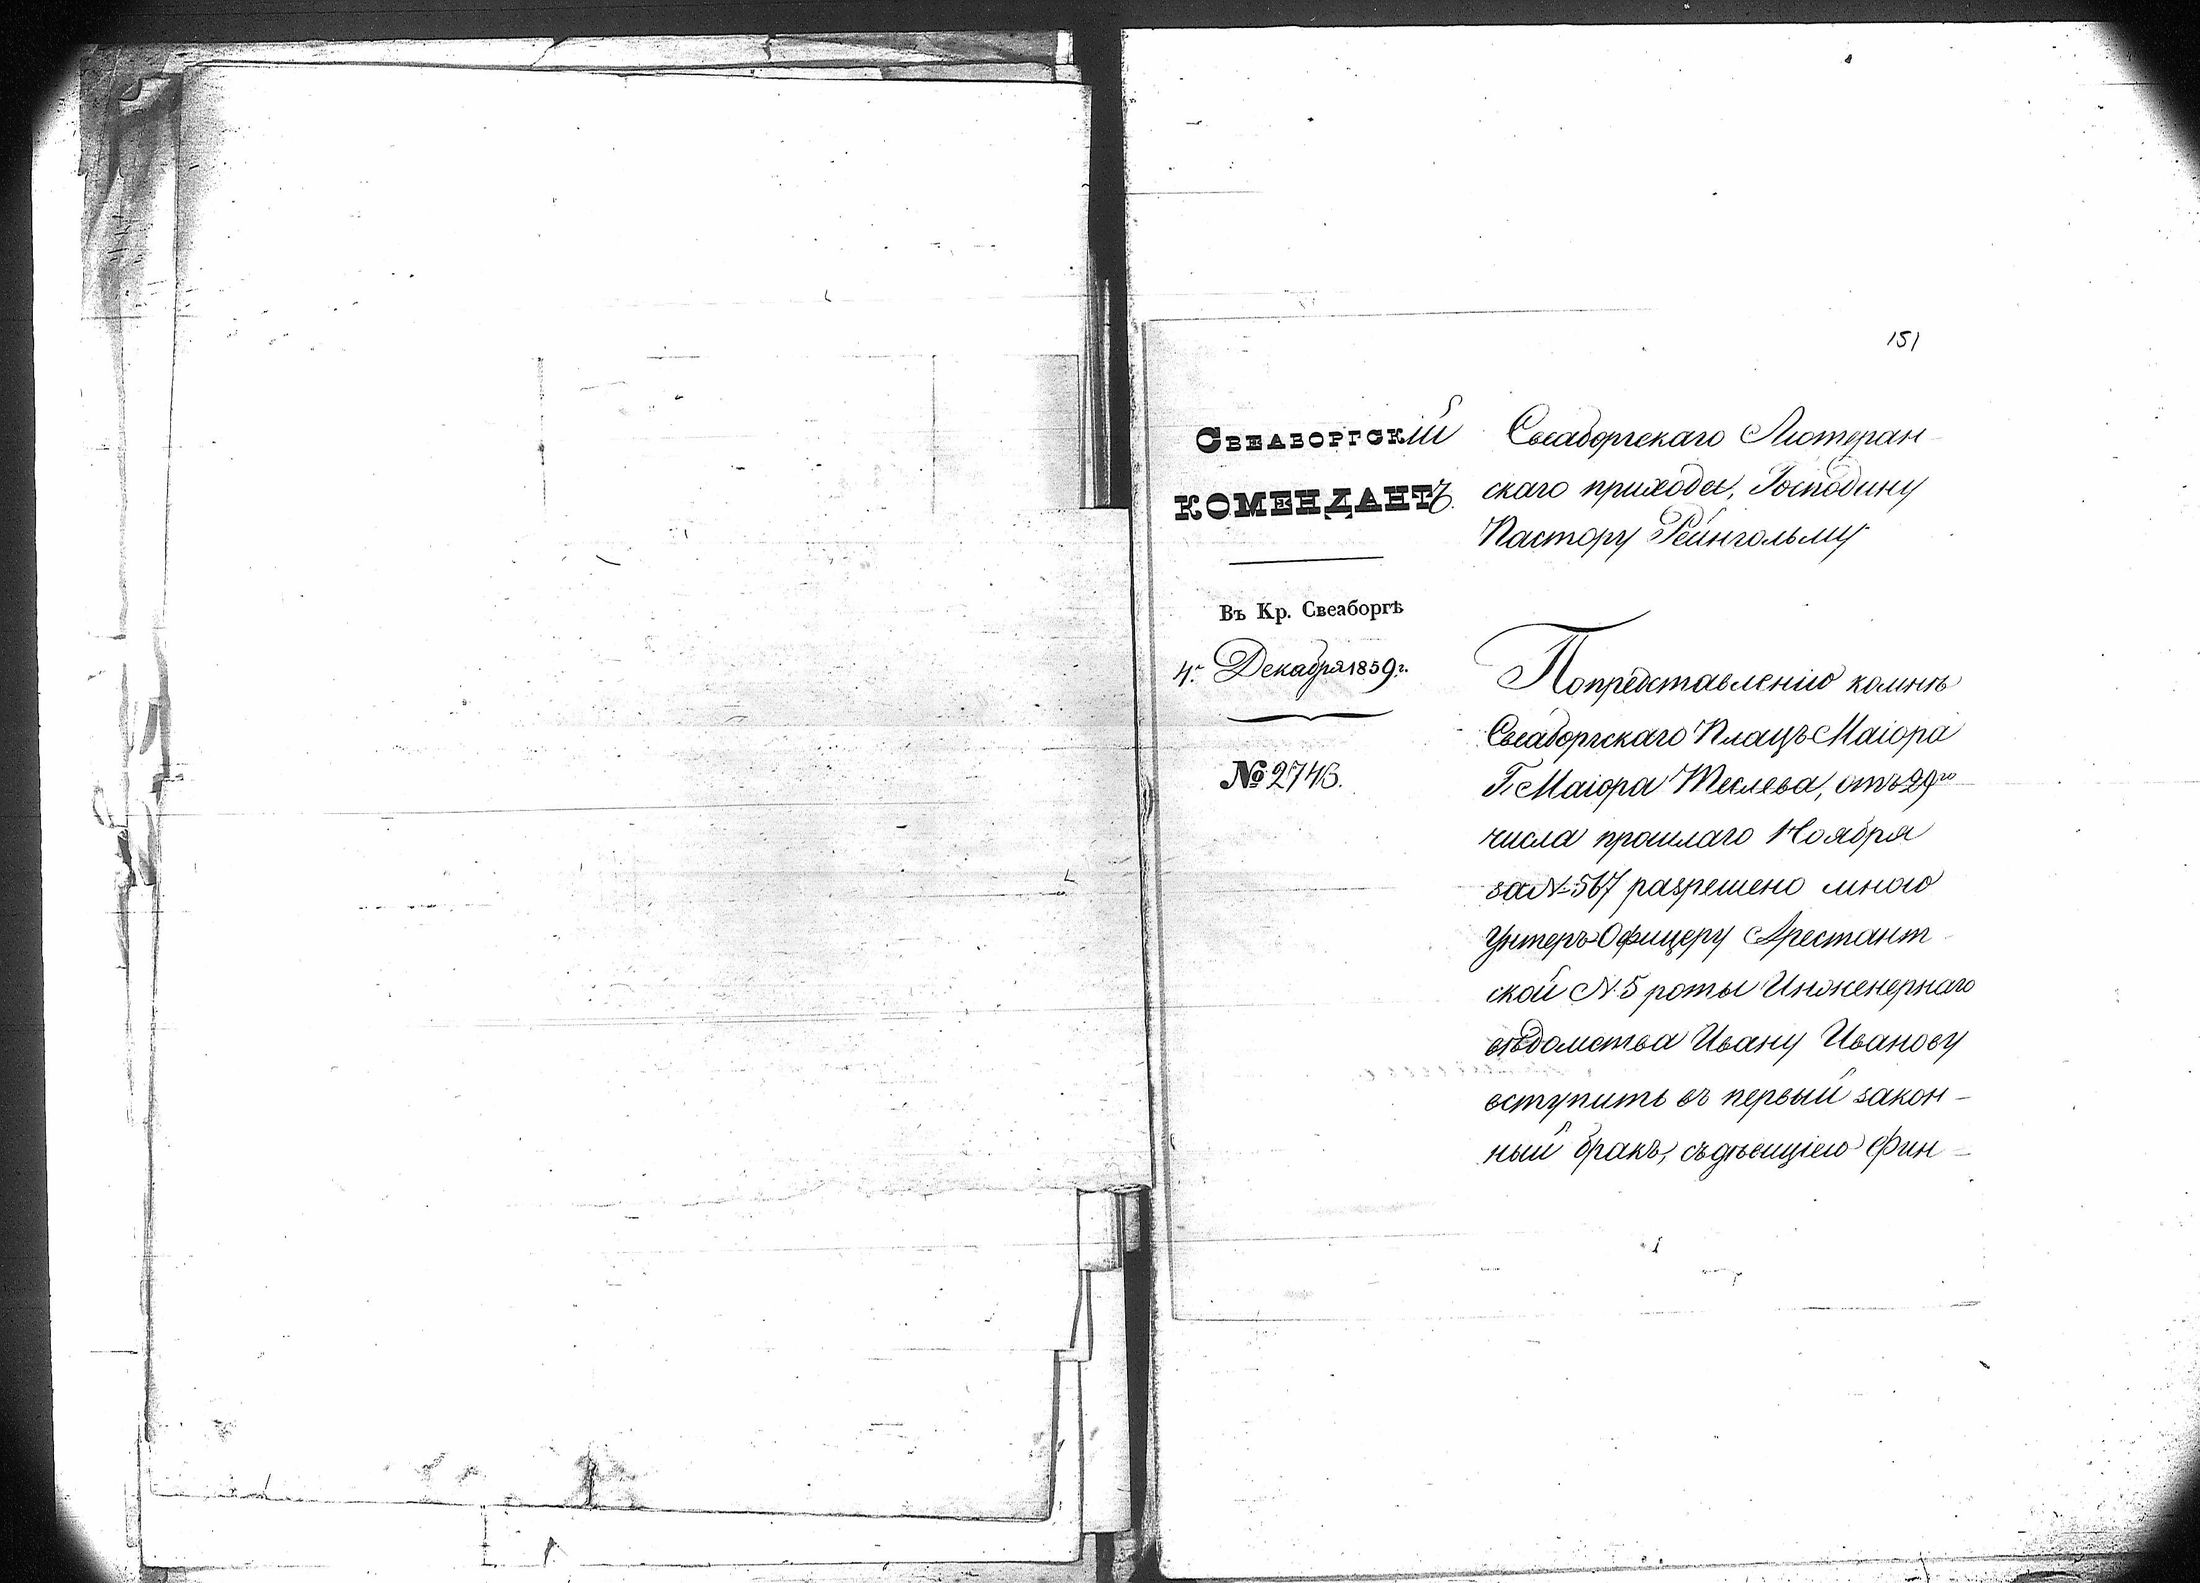 151
Свеаборгскій
комендантъ.
Въ Кр. Свеаборгѣ
4го Декабря 1859 г.
№ 2743.
Свеаборгскаго Лютеран-
скаго прихода, Господину
Пастору Рейнгольму
Попредставленію комнѣ
Свеаборгскаго Плацъ Маіора
Г. Маіора Теслева, отъ 29го
числа прошлаго Ноября
за № 567 разрешено мною
Унтеръ-Офицеру Арестант-
ской № 5 роты Инженернаго
вѣдомства Ивану Иванову
вступить въ первый закон-
ный бракъ, съ дѣвицѣю Фин-